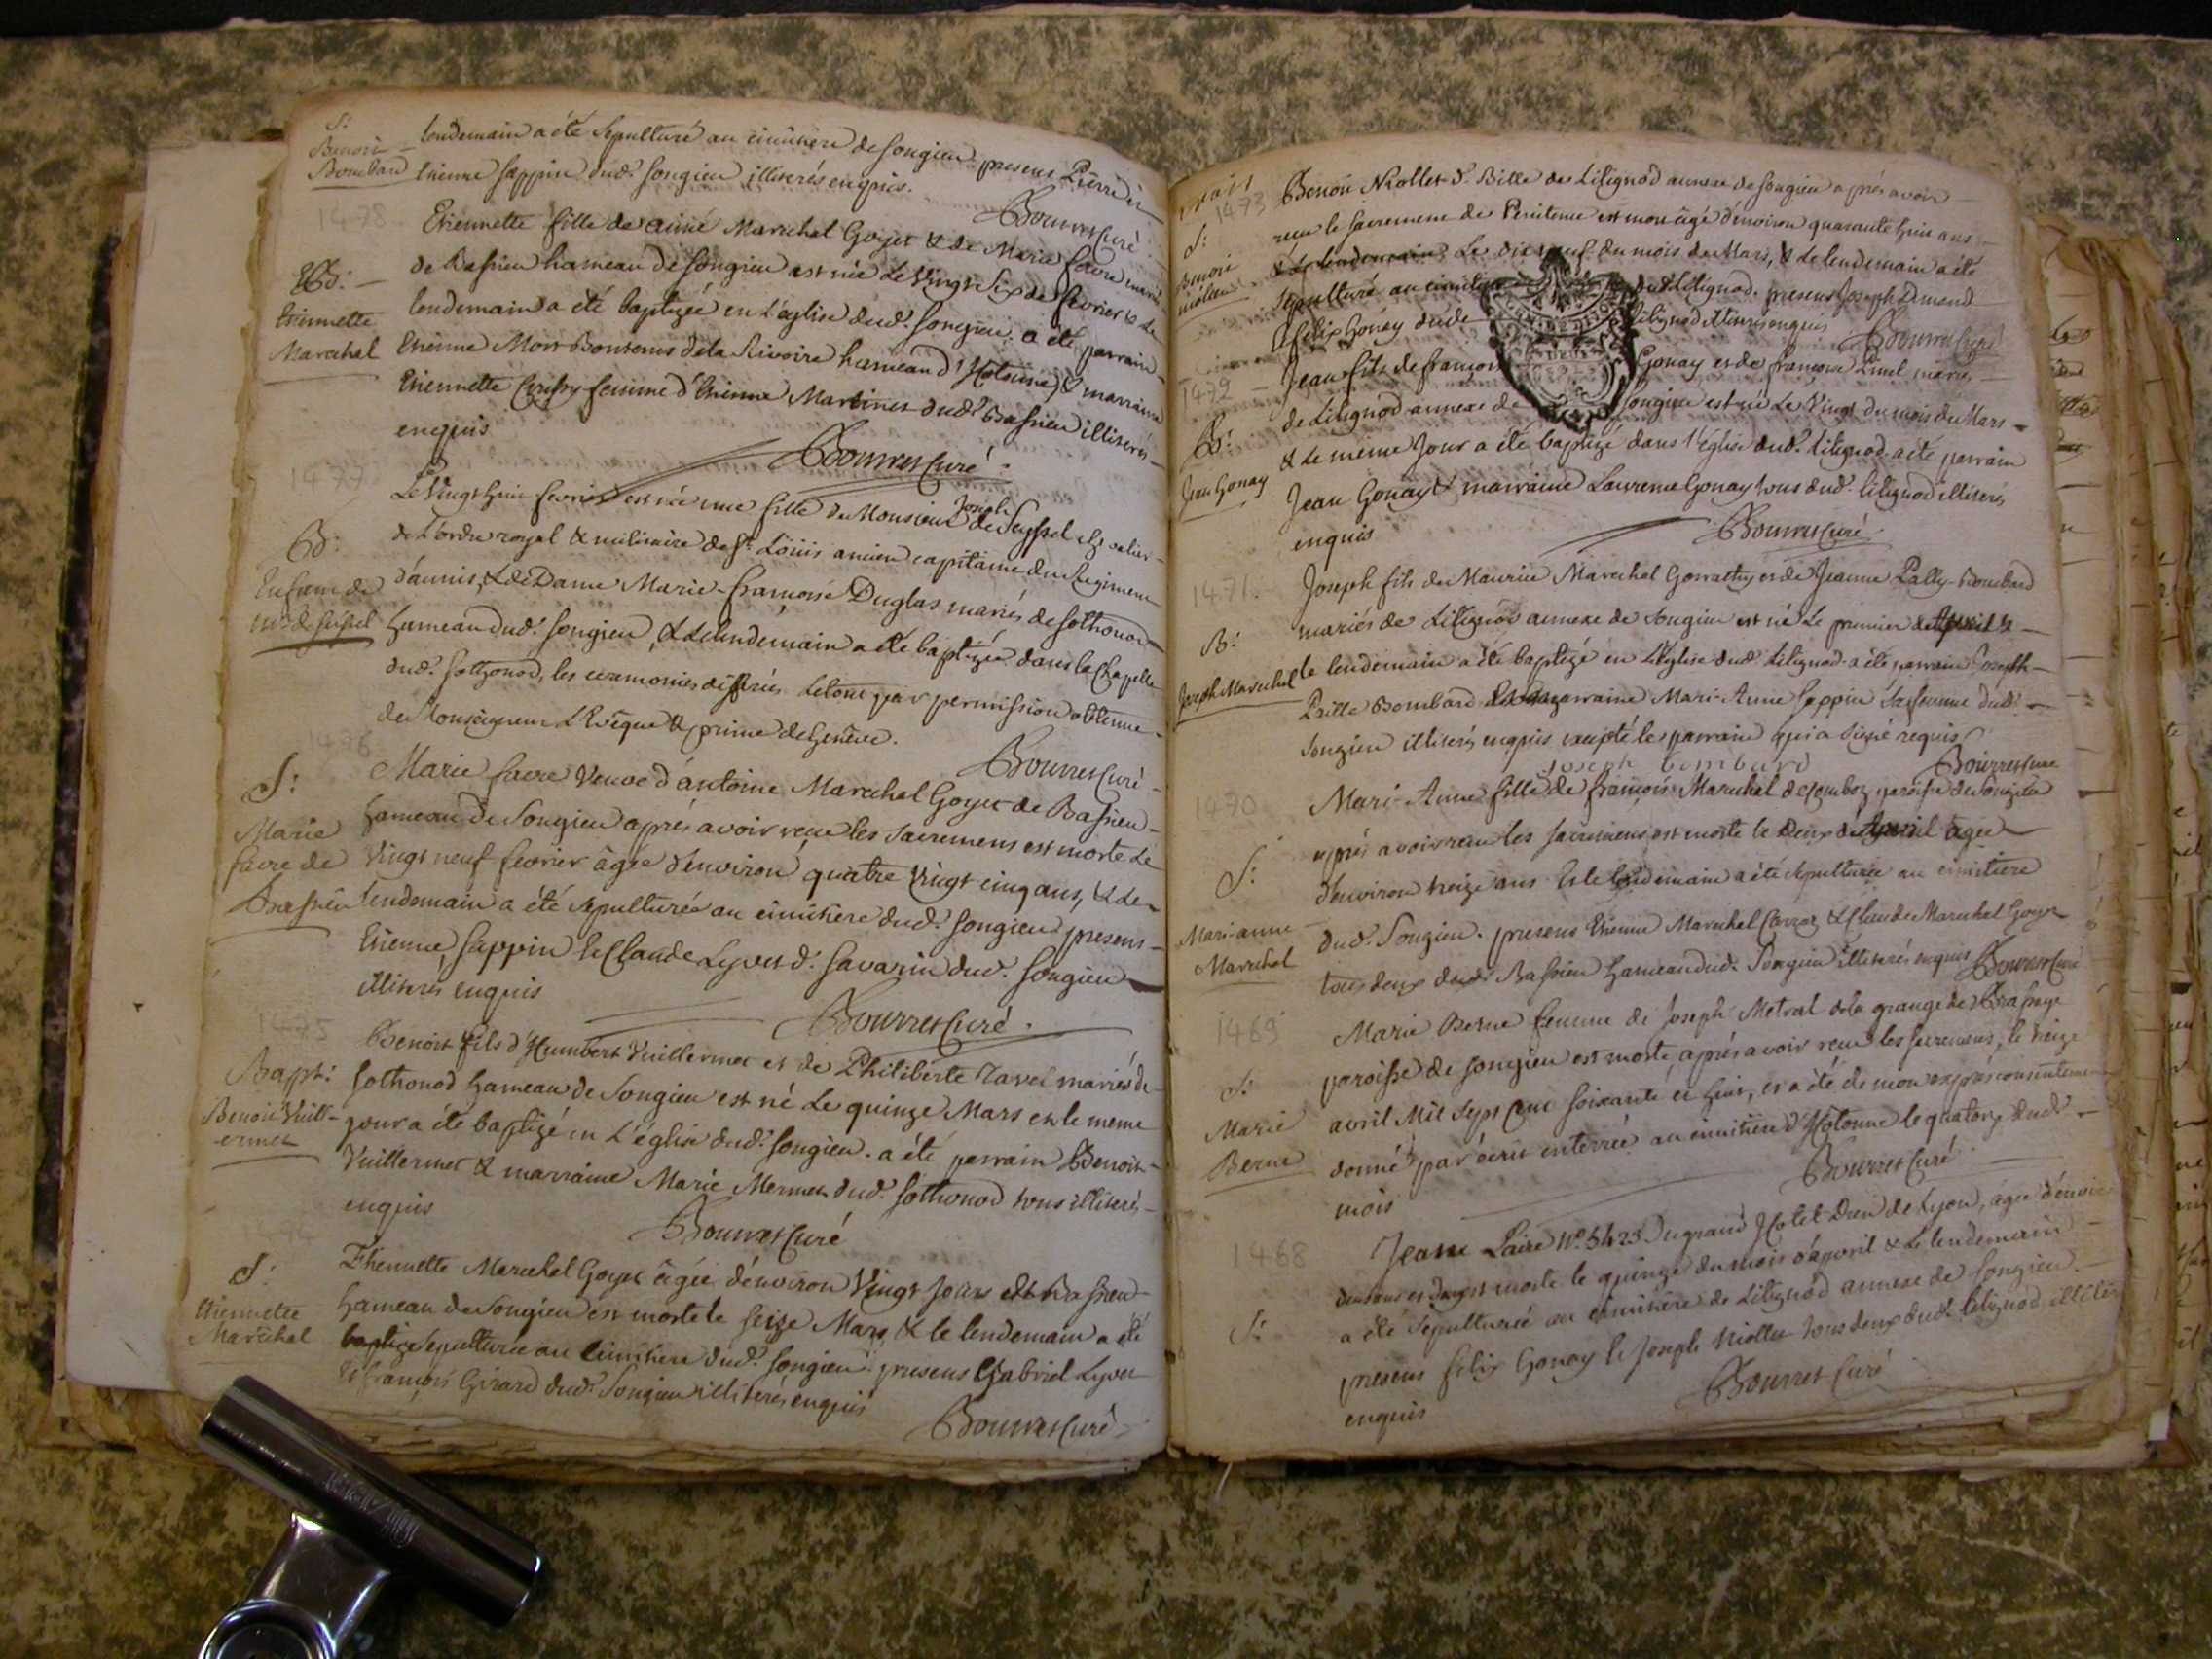 S:
Benoit
Bombard
lendemain a été sepulturé au cimitiere de songieu presens Pierre et
Etienne Sappin dud.t songieu illiterés enquis.
Bourret Curé
1478
Etiennette fille de aimé Marechal Goyet & de Marie favre mariés
B:
Etiennette
Marechal
de Bassieu hameau de songieu est née Le Vingt Six de fevrier & Le
lendemain a été baptizée en L'église dud.t songieu. a été parrain
Etienne Bontems dela Rivoire hameau d'Hotonne, & marraine
Etiennette femme d'Etienne Martinet dud.t Bassieu illiterés
enquis
Bourret Curé
1477
Le Vingt huit fevrier est née une fille de Monsieur Joseph de Seyssel chevalier
B:
Enfant de
mr de seissel
de L'ordre royal & militaire de st Loüis ancien capitaine du Regiment
d'aunis, & de Dame Marie-françoise Duglas mariés de sothonod
hameau dud.t songieu, & Le lendemain a été baptizée dans la chapelle
dud.t sothonod, les ceremonies differées Le tout par permission obtenue
de Monseigneur L'Evêque & prince de Genève.
Bourret Curé
1476
S:
Marie
favre de
Bassieu
Marie favre Veuve d'antoine Marechal Goyet de Bassieu
hameau de Songieu aprés avoir receu les Sacremens est morte Le
Vingt neuf fevrier âgée d'environ quatre Vingt cinq ans, & Le
lendemain a été sepulturée au cimitiere dud.t songieu presens
Etienne Sappin & Claude Lyvet d.t Savarin dud.t songieu
illiterés enquis
Bourret Curé
1475
Bapt:
Benoit Vuill-
ermet
Benoit fils d'Humbert Vuillermet et de Philiberte Tavel mariés de
sothonod hameau de Songieu est né Le quinze Mars et le meme
jour a été baptizé en L'église dud.t songieu. a été parrain Benoit
Vuillermet & marraine Marie Mermet dud.t sothonod tous illiterés
enquis
Bourret Curé
S:
Etiennette
Marechal
Ethennette Marechal Goyet âgée d'environ Vingt jours de Bassieu
hameau de Songieu est morte le seize Mars & le lendemain a été
sepulturée au cimitiere dud.t songieu presens Gabriel Lyvet
& françois Girard dud.t Songieu illiterés enquis
Bourret Curé
1473
S:
Benoit
niollet
Benoit Niollet d.t Bille de Litignod annexe de songieu aprés avoir
receu le sacrement de Penitence est mort âgé d'environ quarante huit ans
& Le lendemain Le dix neuf du mois de Mars, & Le lendemain a été
sepulturé au cimitiere dud.t Litignod. presens Joseph
& felix Gonay dud.t Litignod illiterés enquis Bourret Curé
1472
B:
Jean Gonay
Jean fils de françois Gonay et de françoise mariés
de Litignod annexe de songieu est né Le Vingt du mois de Mars
& Le meme Jour a été baptizé dans l'église dud.t Litignod. a été parrain
Jean Gonay & marraine Laurence Gonay tous dud.t litignod illiterés
enquis
Bourret Curé
1471
B:
Joseph Marechal
Joseph fils de Maurice Marechal et de Jeanne Bombard
mariés de Litignod annexe de Songieu est né Le premier de Apvril &
le lendemain a été baptizé en L'église dud.t Litignod. a été parrain Joseph
Bombard marraine Mari-Anne Sappin sa femme dud.t
Songieu illiterés enquis excepté le parrain qui a signé requis
joseph bombard
Bourret Curé
1470
S:
Mari-anne
Marechal
Mari-Anne fille de françois Marechal paroisse de Songieu
aprés avoir receu les sacremens est morte le deux d'Apvril agée
d'environ treize ans & le lendemain a été sepulturée au cimitiere
dud.t Songieu. presens Etienne Marechal & Claude Marechal Goyet
tous deux de Bassieu hameau dud.t Songieu illiterés enquis Bourret Curé
1469
S:
Marie
Berne
Marie Berne femme de Joseph Metral de la grange de
paroisse de songieu est morte, aprés avoir receu les sacremens, le treize
avril Mil Sept cent soixante et huit, et a été de mon exprés consentement
donné par écrit enterrée au cimitiere d'Hotonne le quatorze dud.t
mois
Bourret Curé
1468
S:
Jeanne Laire N.o 5423 Du grand Hotel Dieu de Lyon, agée d'environ
deux ans et demy est morte le quinze du mois d'apvril & Le lendemain
a été sepulturée au cimitiere de Litignod annexe de songieu.
presens felix Gonay & Joseph Niollet tous deux dud.t litignod illiterés
enquis
Bourret Curé